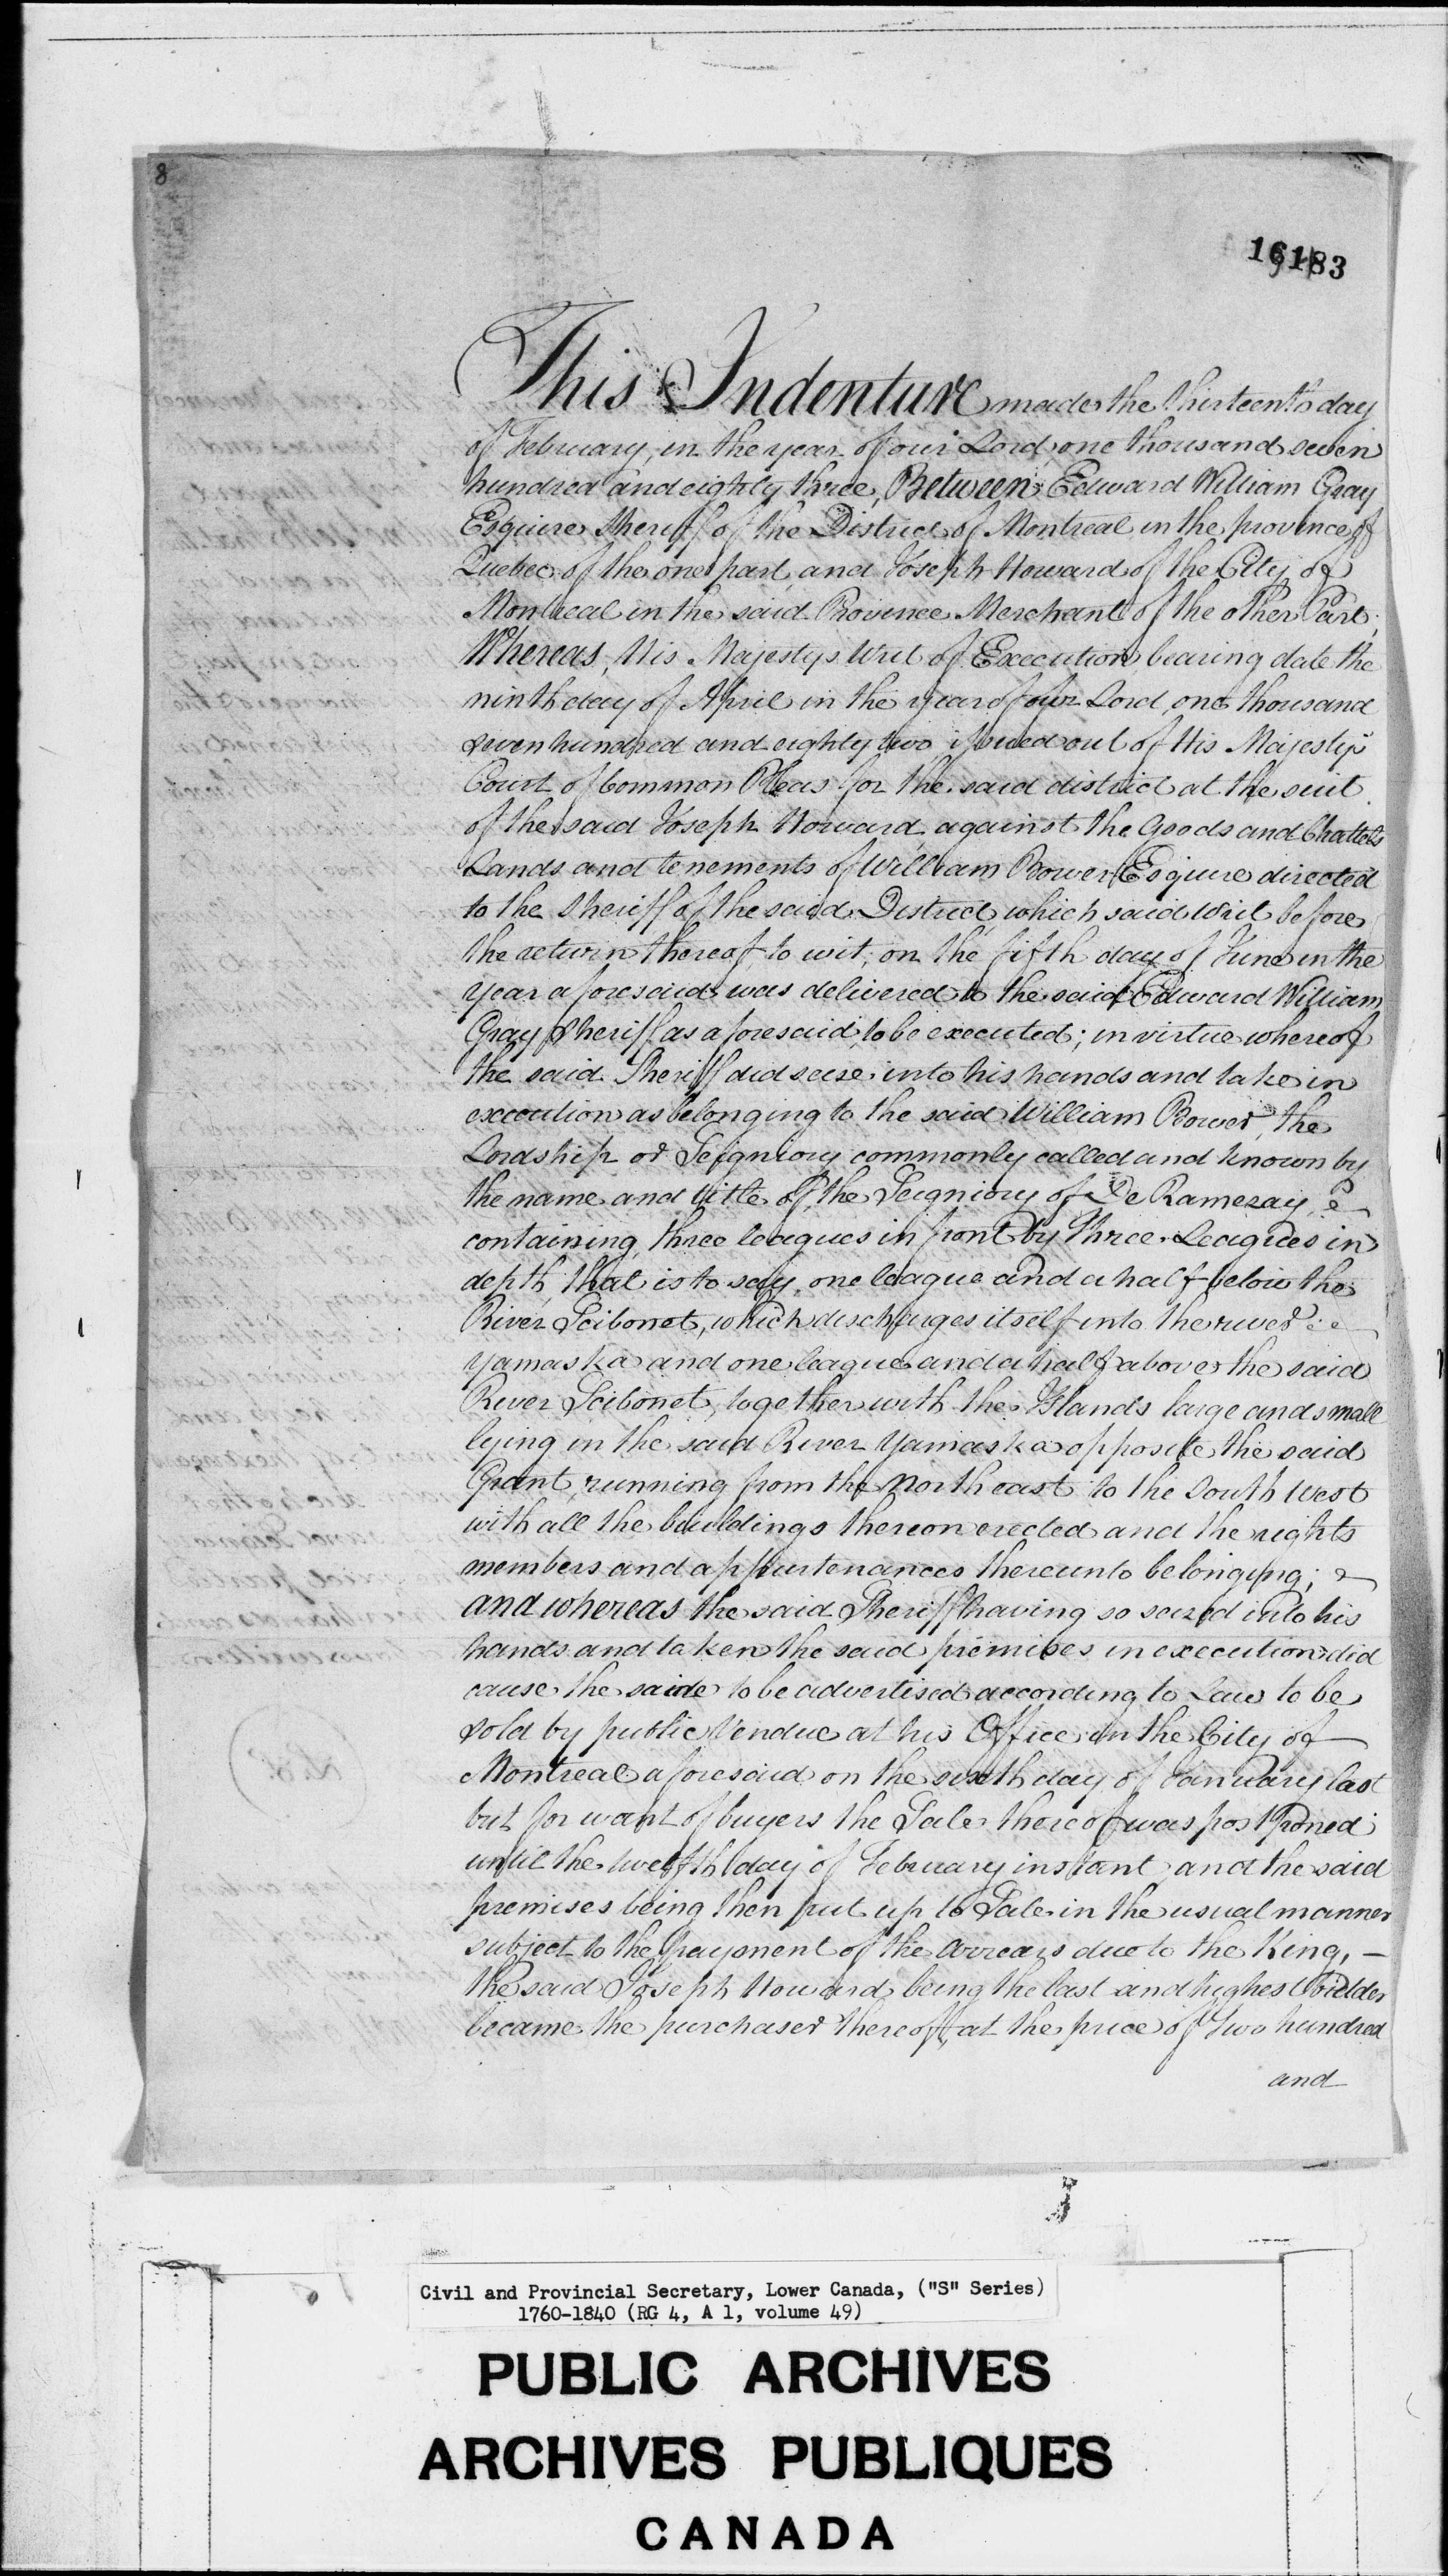 8
16183
This Indenture made the thirteenth day
of February, in the year of our Lord one thousand seven
hundred and eighty three, Between Edward William Gray
Esquire Sheriff of the District of Montreal in the province of
Quebec of the one part and Joseph Howard of the City of
Montreal in the said Province Merchant of the other Part;
Whereas, His Majestys Writ of Execution bearing date the
ninth day of April in the year of our Lord, one thousand
seven hundred and eighty two issued out of His Majestys
Court of Common Pleas for the said district at the suit
of the said Joseph Howard, against the Goods and Chattels
Lands and tenements of William Bower Esquire directed
to the Sheriff of the said District, which said Writ before
the return thereof to wit; on the fifth day of June in the
year aforesaid was delivered to the said Edward William
Gray Sheriff as aforesaid, to be executed; in virtue whereof
the said Sheriff did seise into his hands and take in
execution as belonging to the said William Bower, the
Lordship or Seigniory commonly called and known by
the name and title of the Seigniory of De Ramezay,
containing three leagues in front by three Leagues in
depth, that is to say, one league and a half below the
River Scibonet, which discharges itself into the river
Yamaska and one league and a half above the said
River Scibonet, together with the Islands large and small
lying in the said River Yamaska opposite the said
Grant, running from the North east to the South West
with all the buildings thereon erected and the rights
members and appurtenances thereunto belonging;
and whereas the said Sheriff having so seized into his
hands and taken the said premises in execution did
cause the same to be advertised according to Law to be
sold by public Vendue at his Office in the City of
Montreal aforesaid on the sixth day of January last
but for want of buyers the Sale thereof was postponed
until the twelfth day of February instant and the said
premises being then put up to Sale in the usual manner
subject to the payment of the arrears due to the King, —
the said Joseph Howard being the last and highest bidder
became the purchaser thereof, at the price of Two hundred
and
Civil and Provincial Secretary, Lower Canada, ("S" Series)
1760-1840 (RG 4, A 1, volume 49)
PUBLIC ARCHIVES
ARCHIVES PUBLIQUES
CANADA